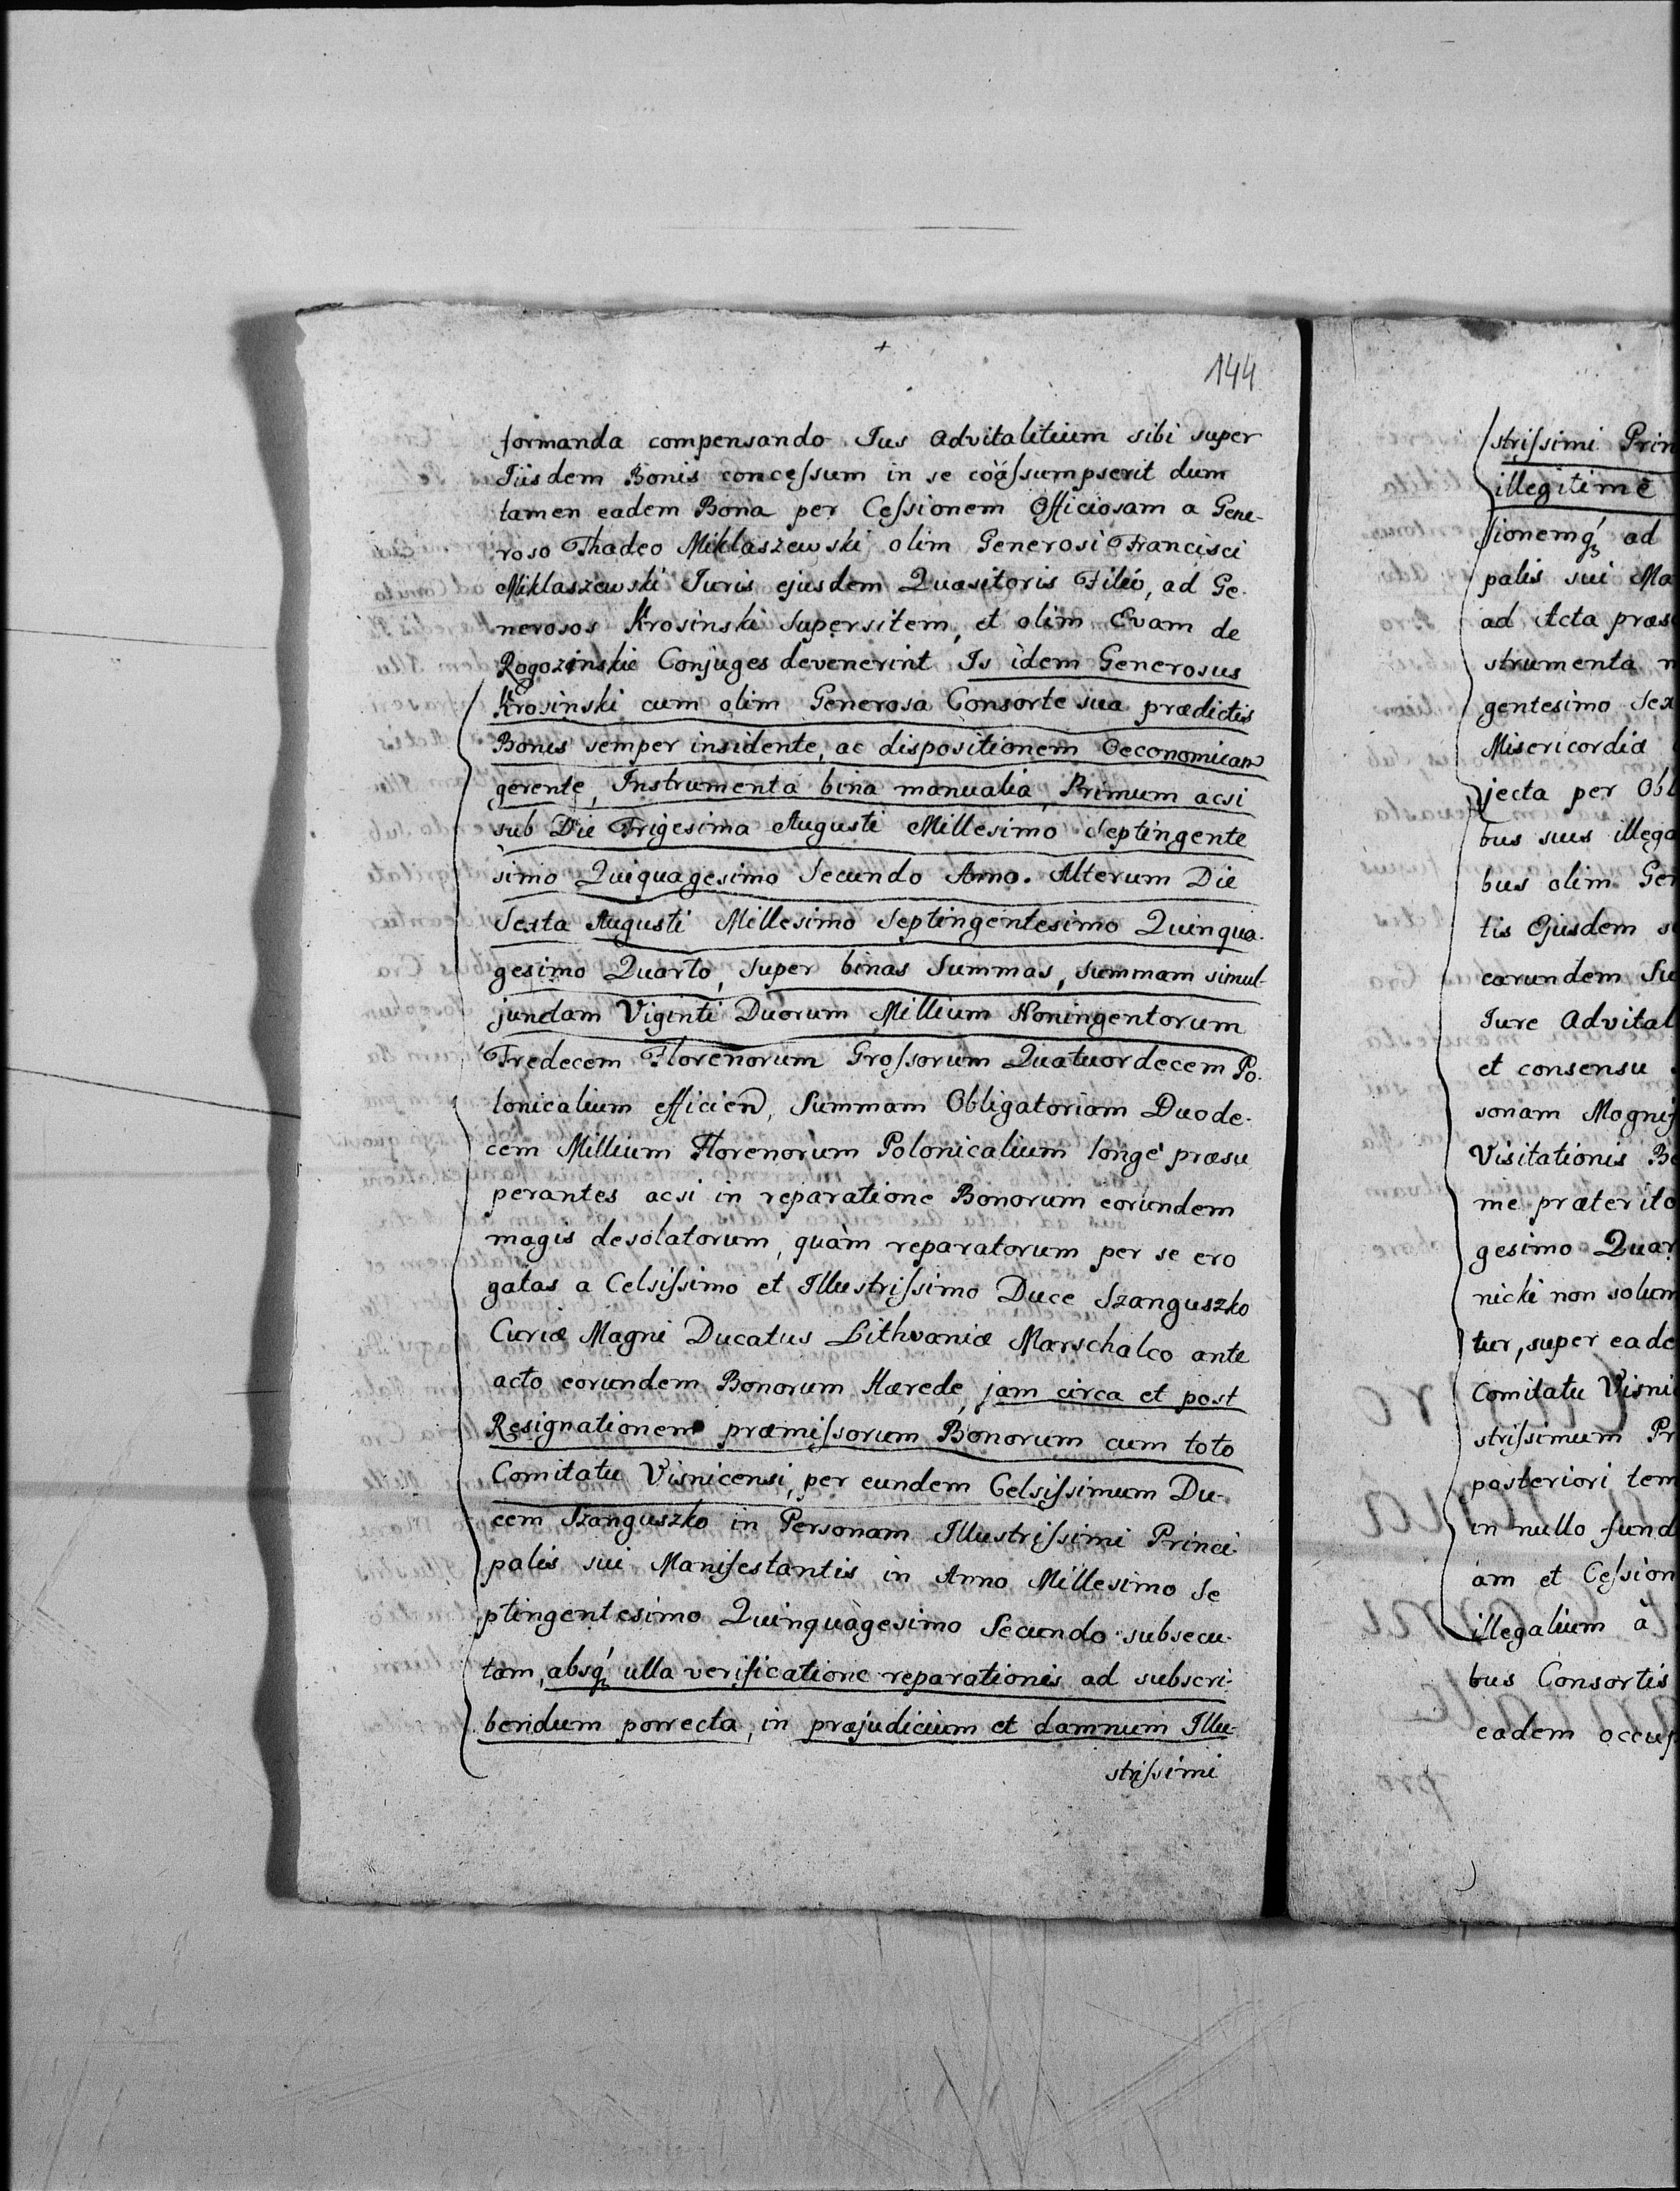 144
formanda compensando Jus Advitalitium sibi super
Iisdem Bonis conceſsum in se coaſsumpserit dum
tamen eadem Bona per Ceſsionem Officiosam a Gene-
roso Thadeo Miklaszewski olim Generosi Francisci
Miklaszewski Juris ejusdem Quæsitoris Filio, ad Ge-
nerosos Krosinski Supersitem, et olim Evam de
Rogozinskie Conjuges devenerint Is idem Generosus
Krosinski cum olim Generosa Consorte sua prædictis
Bonis semper insidente, ac dispositionem Oeconomicam
gerente, Instrumenta bina manualia, Primum acsi
sub Die Trigesima Augusti Millesimo Septingente
simo Quiquagesimo Secundo Anno. Alterum Die
Sexta Augusti Millesimo Septingentesimo Quinqua-
gesimo Quarto, super binas Summas, summam simul-
junctam Viginti Duorum Millium Noningentorum
Tredecem Florenorum Groſsorum Quatuordecem Po-
lonicalium efficien, Summam Obligatoriam Duode-
cem Millium Florenorum Polonicalium longe præsu
perantes acsi in reparatione Bonorum eorundem
magis desolatorum, quàm reparatorum per se ero
gatas a Celsiſsimo et Illustriſsimo Duce Szanguszko
Curiæ Magni Ducatus Lithvaniæ Marschalco ante
acto eorundem Bonorum Hærede, jam circa et post
Resignationem præmiſsorum Bonorum cum toto
Comitatu Visnicensi, per eundem Celsiſsimum Du-
cem Szanguszko in Personam Illustriſsimi Princi-
palis sui Manifestantis in Anno Millesimo Se
ptingentesimo Quinquagesimo Secundo subsecu-
tam, absq́ ulla verificatione reparationis ad subscri-
bendum porrecta, in præjudicium et damnum Illu-
striſsimi
striſsimi Prin
illegitimè
ſionemq́ ad
palis sui Ma
ad Acta præs
strumenta
gentesimo Sex
Misericordia
jecta per Obl
bus suis illega
bus olim Gen
tis Ejusdem
earundem Su
Jure Advital
et consensu
sonam Magnif
Visitationis Be
me præterito
gesimo Quar
nicki non solum
tur, super eade
Comitatu Visni
striſsimum Pr
posteriori tem
in nullo fund
am et Ceſsion
illegalium à
bus Consortis
eadem occup